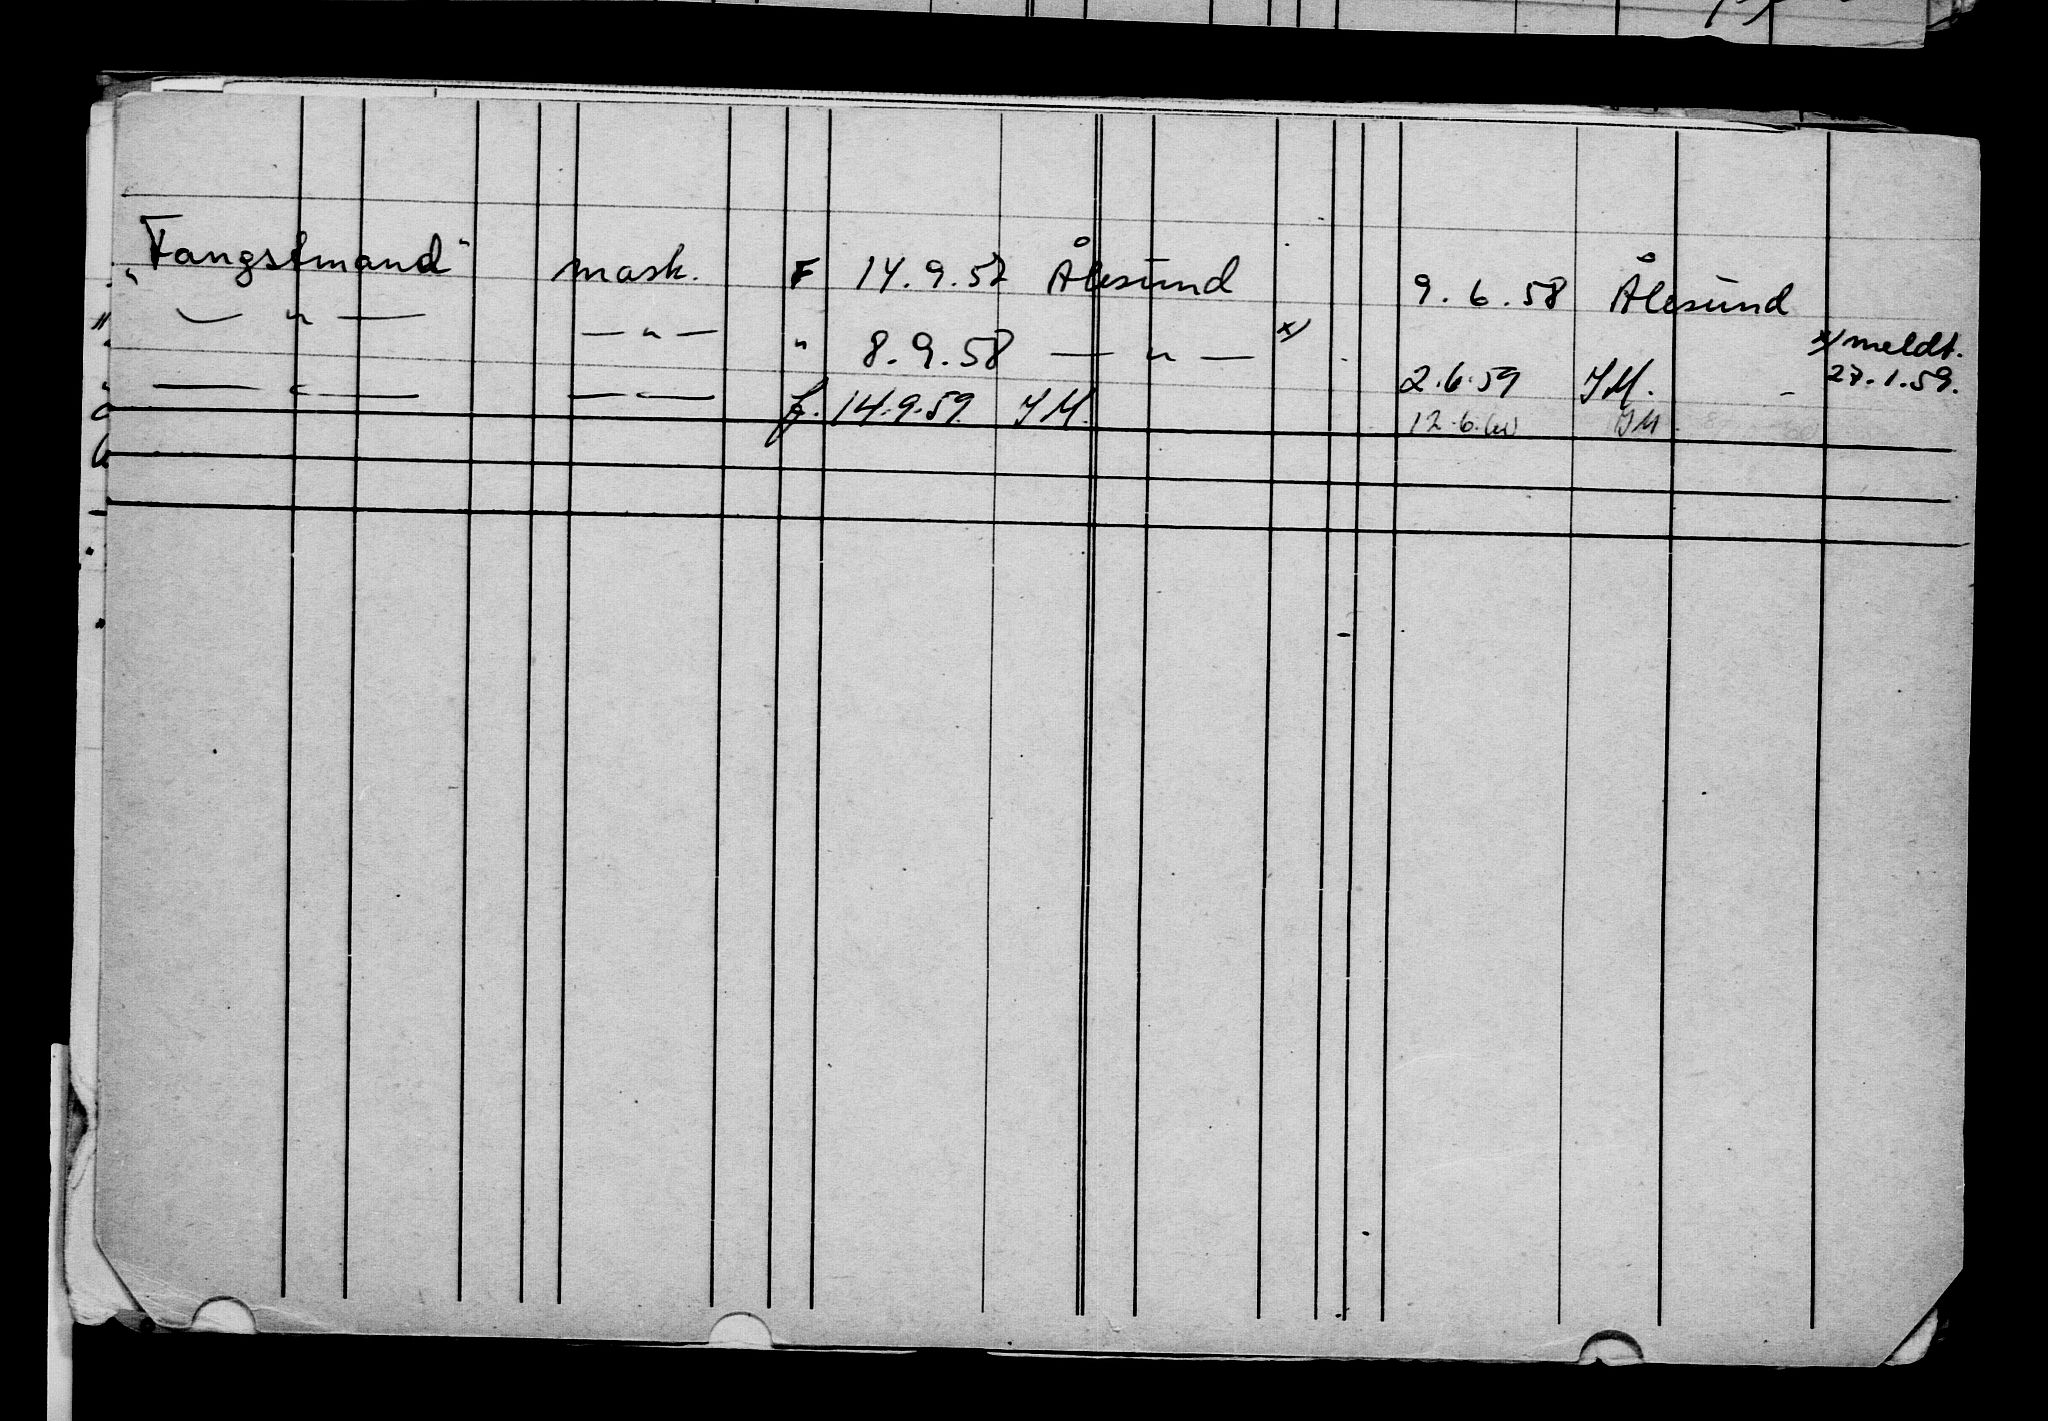 "Fangstmand" mask. F 14.9.57 Ålesund 9.6.58 Ålesund
— " — — " — " 8.9.58 — " — x) 2.6.59 IM. - x) meldt. 27.1.59.
— " — — " — f. 14.9.59 IM. 12.6.60 IM.